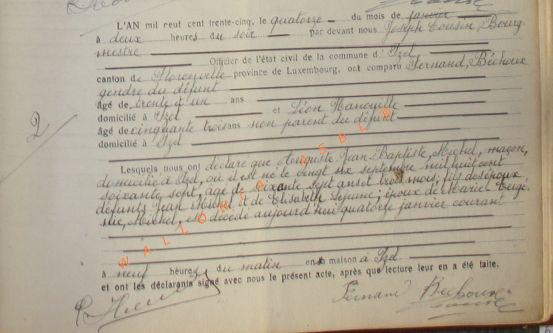 L'AN mil neuf cent trente-cinq, le quatorze du mois de janvier
à deux heures du soir par devant nous Joseph Cousin, Bourg
mestre Officier de l'état civil de la commune d'Izel
canton de Florenville province de Luxembourg, ont comparu Fernand, Béchoux
gendre du défunt
âgé de trente d'un ans
domicilié à Izel et Léon Hanouille
âgé de cinquante trois ans non parent du défunt
domicilié à Izel
2
Lesquels nous ont déclaré que Auguste Jean Baptiste, Michel, maçon,
domicilié à Izel, où il est né le vingt septembre mil huit cent
soixante sept, âgé de soixante sept ans et trois mois, fils des époux
défunts Jean Michel et de Elisabeth Lejeune; époux de Marie
Michel, est décédé aujourd'hui quatorze janvier courant
à neuf heures du matin en sa maison à Izel
et ont les déclarants signé avec nous le présent acte, après que lecture leur en a été faite.
Fernand Bechoux
WALLONIA ASBL